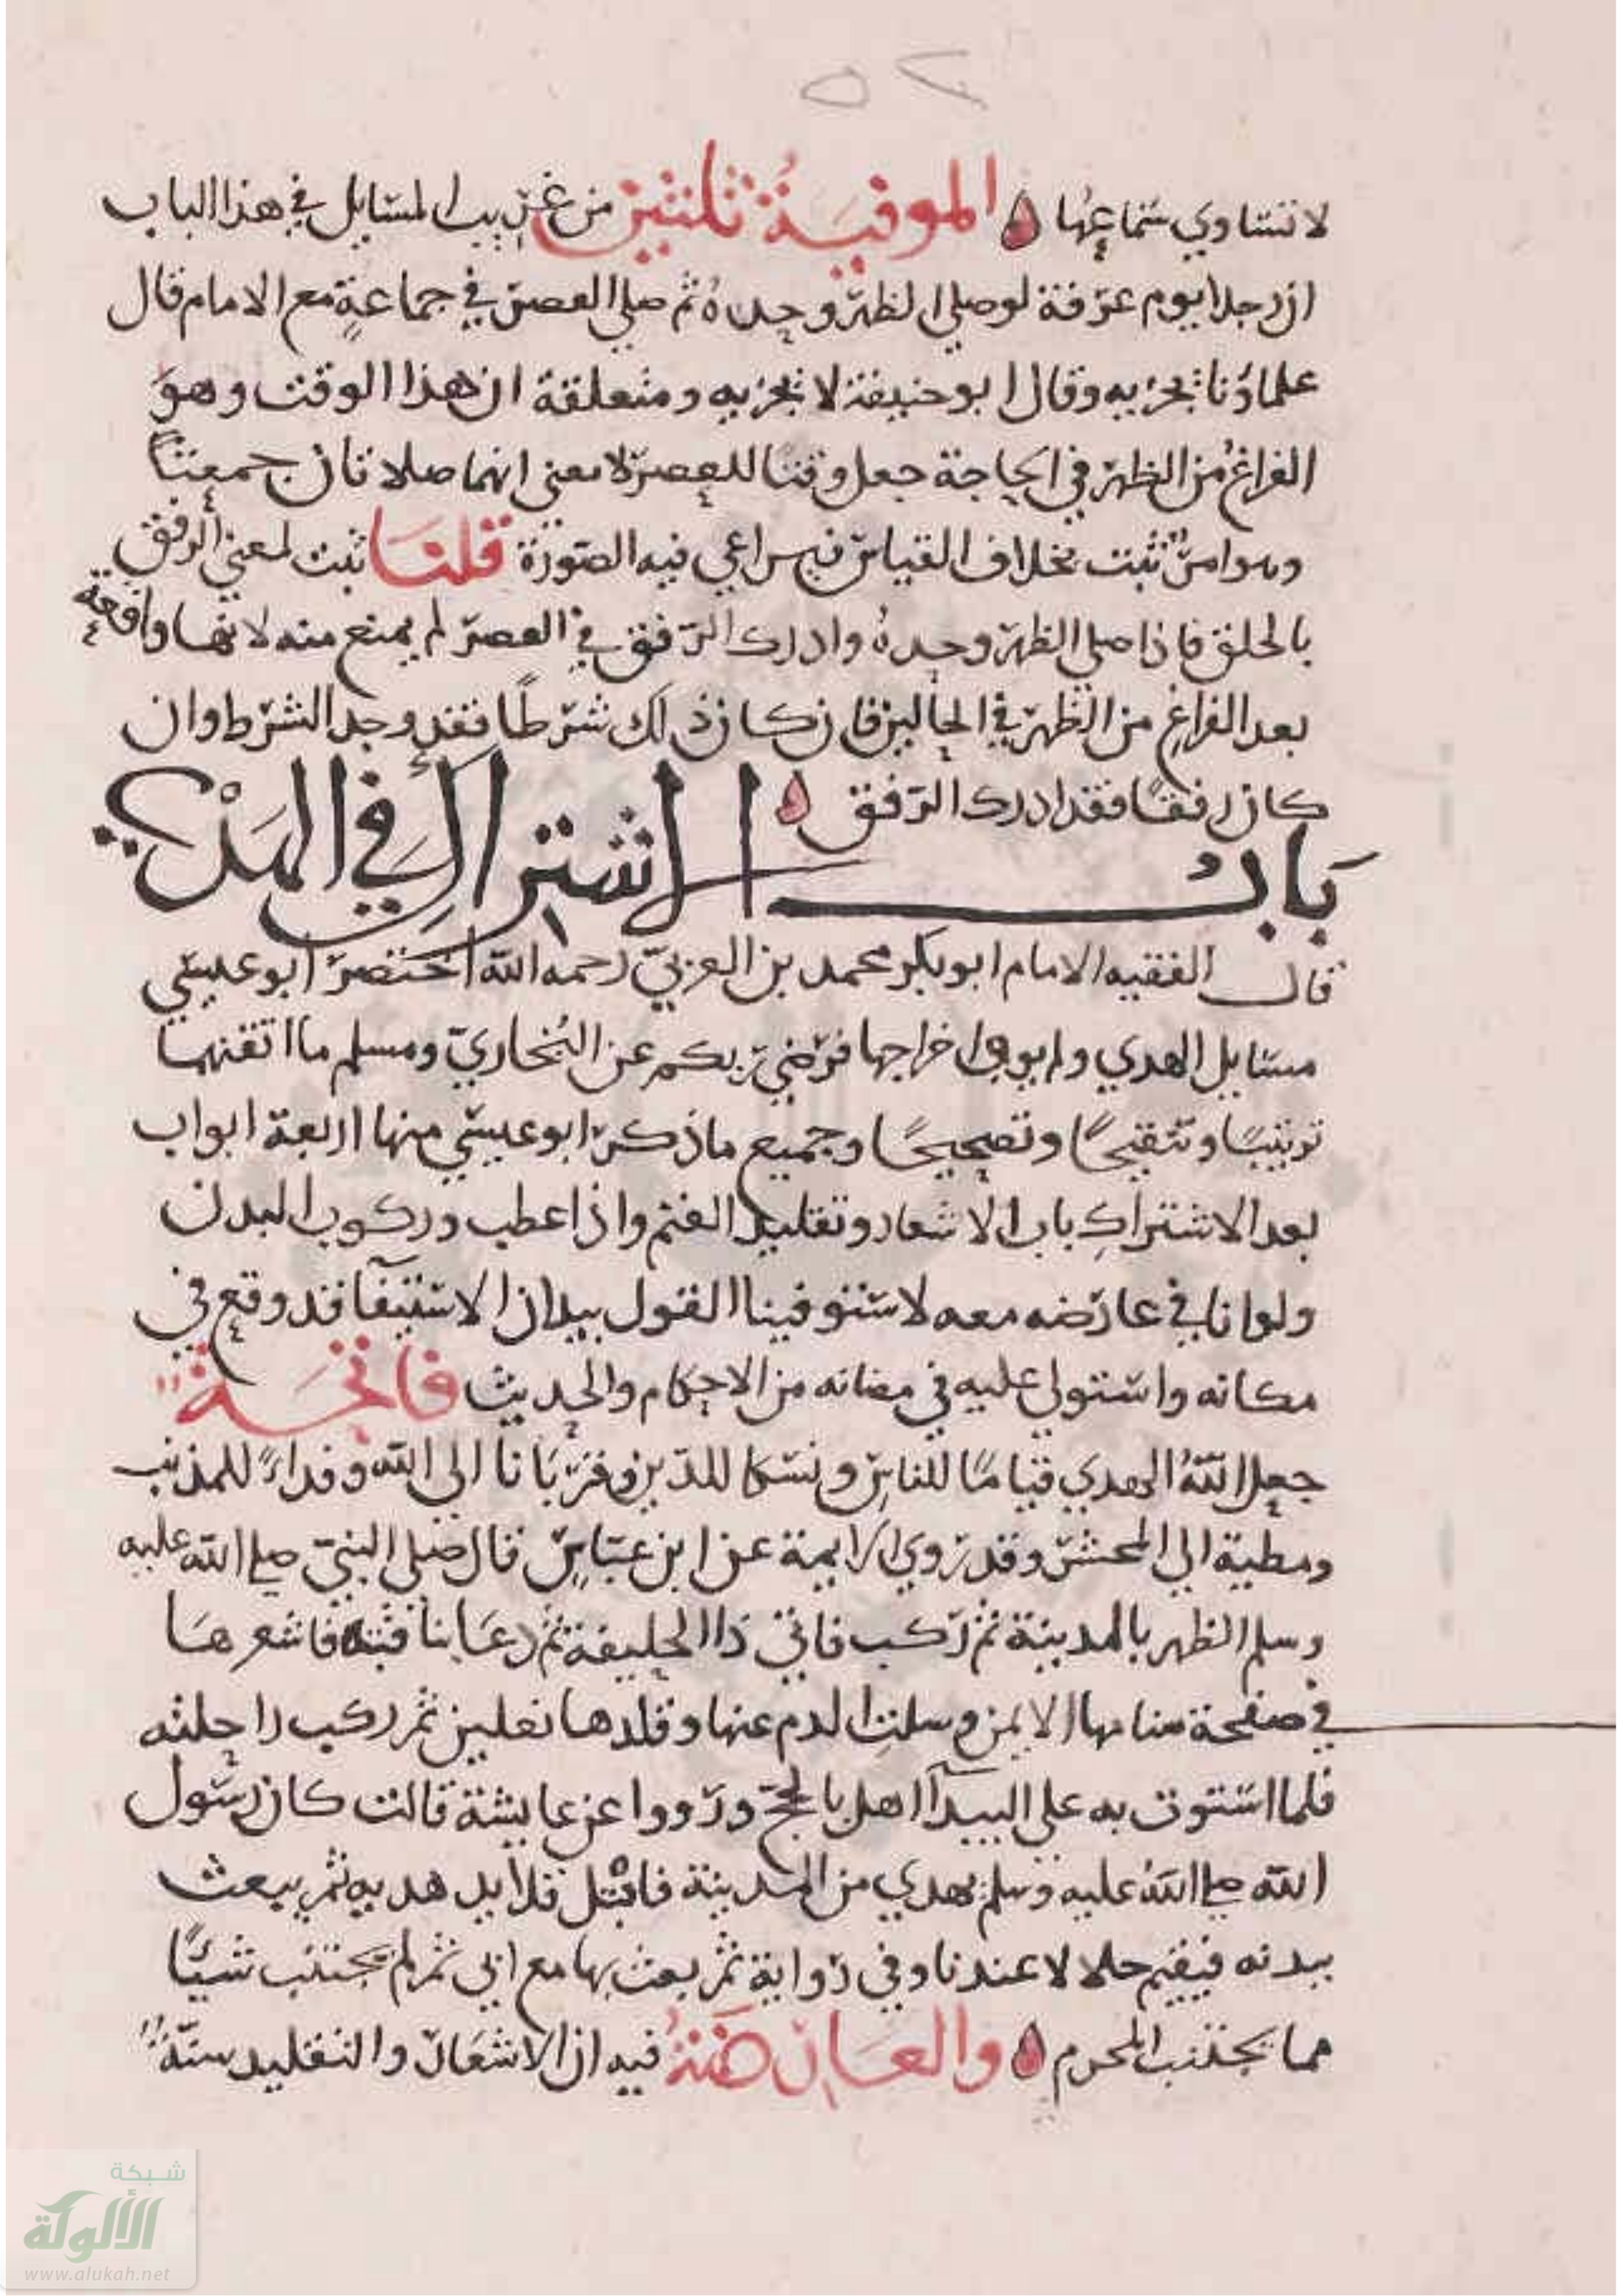 ٥٢
لا تتساوي سماعها ه الموفية ثلثين من غريب المسايل في هذا الباب
ان رجلا يوم عرفة لو صلى الظهر وحده ثم صلى العصر في جماعة مع الامام قال
علماؤنا يجزيه وقال ابو حنيفة لا يجزيه ومتعلقة ان هذا الوقت وهو
الفراغ من الظهر في الجاجة جعل وقتا للعصر لا معنى انهما صلاتان جمعتا
وهو امر ثبت بخلاف القياس فيراعي فيه الصورة قلنا ثبت لمعنى الرفق
بالخلق فاذا صلى الظهر وحده وادرك الرفق في العصر لم يمنع منه لانها واقعة
بعد الفراغ من الظهر في الحالين فان كان ذلك شرطا فقد وجد الشرط وان
كان رفقا فقد ادرك الرفق ه
باب الاشتراك في الهدي
قال الفقيه الامام ابو بكر محمد بن العربي رحمه الله اختصر ابو عيسى
مسايل الهدي ولم يوف اخراجها فرضي ربكم عن البخاري ومسلم ما اتقنهما
ترتيبا وتنقيحا وتصحيحا وجميع ما ذكر ابو عيسى منها اربعة ابواب
بعد الاشتراك باب الاشعار وتقليد الغنم واذا عطب وركوب البدن
ولو انا في عارضه معه لاستوفينا القول بيد ان الاستيفا قد وقع في
مكانه واستولى عليه في مضانه من الاحكام والحديث فاتحة
جعل الله الهدي قياما للناس ونسكا للدين وقربانا الى الله وفداء للمذنب
ومطية الى المحشر وقد روي الايمة عن ابن عباس قال صلى النبي صلى الله عليه
وسلم الظهر بالمدينة ثم ركب فاتى ذا الحليفة ثم دعا بناقته فاشعرها
في صفحة سنامها الايمن وسلت الدم عنها وقلدها نعلين ثم ركب راحلته
فلما استوت به على البيدآ اهل بالحج ورووا عن عايشة قالت كان رسول
الله صلى الله عليه وسلم يهدي من المدينة فافتل قلايد هديه ثم يبعث
ببدنه فيقيم حلالا عندنا وفي رواية ثم بعث بها مع ابي ثم لم يجتنب شيئا
مما يجتنب المحرم ه والعارضة فيه ان الاشعار والتقليد سنة
شبكة
الألوكة
www.alukah.net